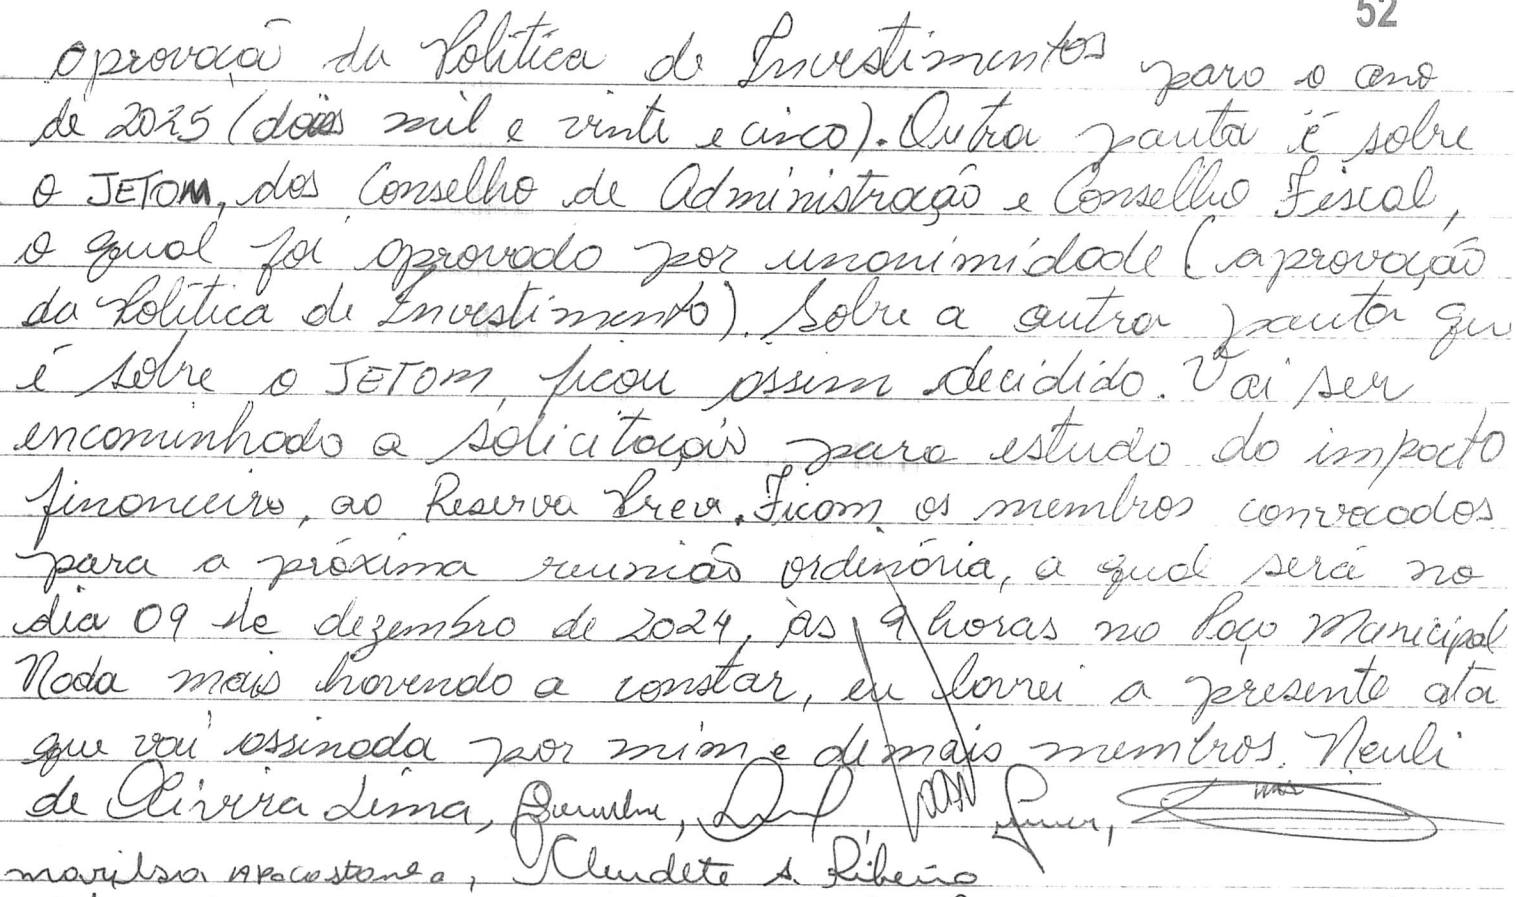 52
aprovação da Política de Investimentos para o ano
de 2025 (dois mil e vinte e cinco). Outra pauta é sobre
o JETOM, dos Conselho de Administração e Conselho Fiscal,
o qual foi aprovado por unanimidade (aprovação
da Política de Investimento). Sobre a outra pauta que
é sobre o JETOM, ficou assim decidido. Vai ser
encaminhado a solicitação para estudo do impacto
financeiro, ao Reserva Prev. Ficam os membros convocados
para a próxima reunião ordinária, a qual será no
dia 09 de dezembro de 2024, às 9 horas no Paço Municipal
Nada mais havendo a constar, eu lavrei a presente ata
que vai assinada por mim e demais membros. Neuli
de Oliveira Lima,
marilsa, Claudete A. Ribeiro